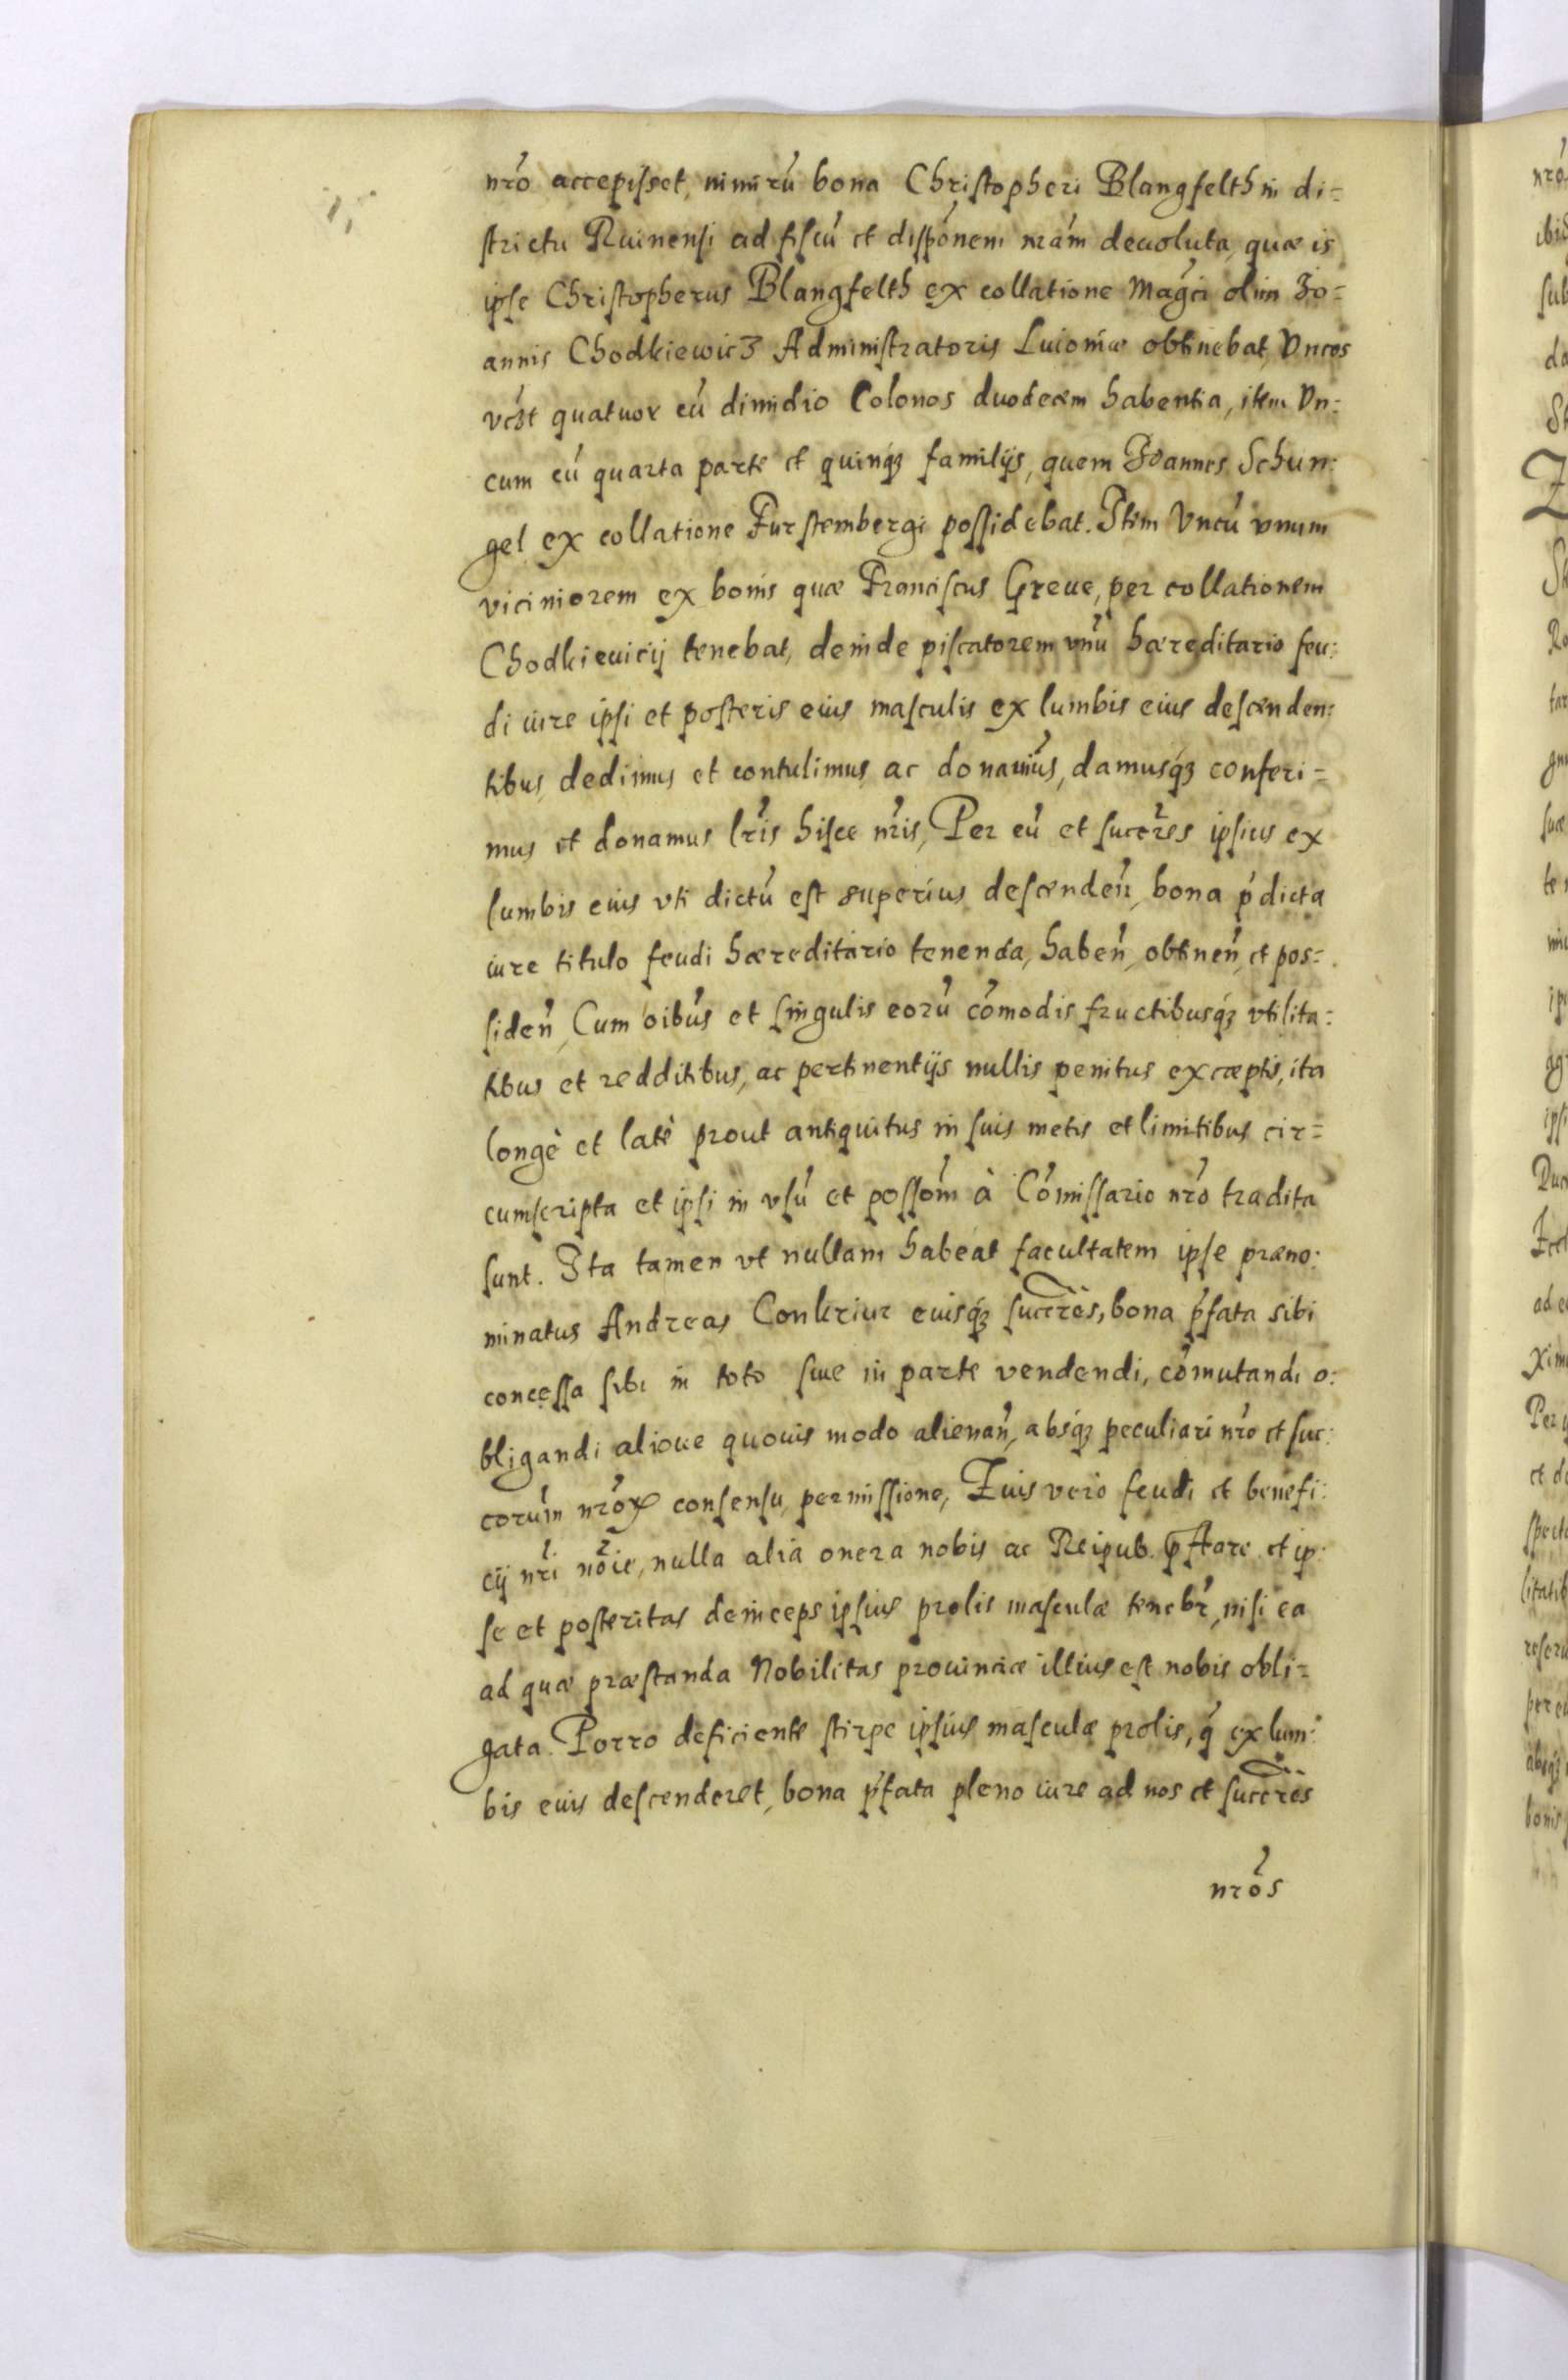 nro accepisset, nimirũ bona Christopheri Blangfelth in di=
strictu Ruinensi ad fiscũ et dispõnem nrãm deuoluta, quæ is
ipse Christopherus Blangfelth ex collatione Magci olim Jo=
annis Chodkiewicz Administratoris Liuoniæ obtinebat, Vncos
vczt quatuor cũ dimidio Colonos duodecem habentia, item Vn:
cum cũ quarta parte et quinqz familijs, quem Joannes Schun:
gel ex collatione Furstembergi possidebat. Item Vncũ vnum
viciniorem ex bonis quæ Franciscus Greue, per collationem
Chodkieuicij tenebat, deinde piscatorem vnũ hæreditario feu:
di iure ipsi et posteris eius masculis ex lumbis eius descenden:
tibus, dedimus et contulimus, ac donauim̃us, damusqz conferi=
mus et donamus lr̃is hisce nr̃is, Per eũ et succr̃es ipsius ex
lumbis eius vti dictũ est superius descendeñ, bona p̃dicta
iure titulo feudi hæreditario tenenda, habeñ, obtineñ, et pos=
sideñ, Cum oĩbus et singulis eorũ cõmodis fructibusqz vtilita:
tibus et redditibus, ac pertinentijs nullis penitus excæptis, ita
longè et latè prout antiquitus in suis metis et limitibus cir=
cumscripta et ipsi in vsũ et possom̃ à Cõmissario nrõ tradita
sunt. Ita tamen vt nullam habeat facultatem ipse præno:
minatus Andreas Conkriur eiusqz succr̃es, bona p̃fata sibi
concessa sibi in toto siue in parte vendendi, cõmutandi o:
bligandi alioue quouis modo alienañ, absqz peculiari nrõ et suc:
corum̃ nrõꝝ consensu, permissione, Iuis vero feudi et benefi:
cij nr̃i nõie, nulla alia onera nobis ac Reipub. p̃stare et ip:
se et posteritas deinceps ipsius prolis masculæ tenebr̃, nisi ea
ad quæ præstanda Nobilitas prouinciæ illius est nobis obli=
gata. Porro deficiente stirpe ipsius masculæ prolis, q̃ ex lum:
bis eius descenderet, bona p̃fata pleno iure ad nos et succr̃es
nrõs